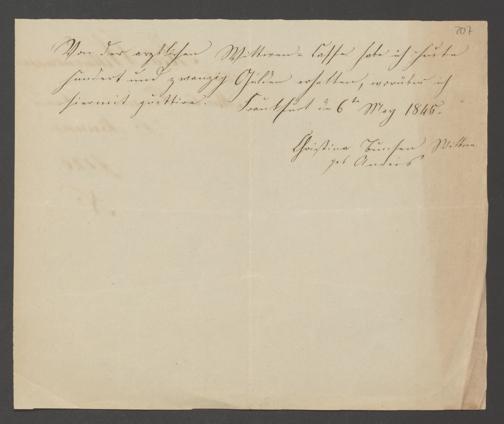 207
Von der arztlichen Wittwen-Casse habe ich heute
hundert und zwanzig Gulden erhalten, worüber ich
hiermit quittire. Frankfurt d 6ten May 1846.
Christina Bunsen Wittwe
geb